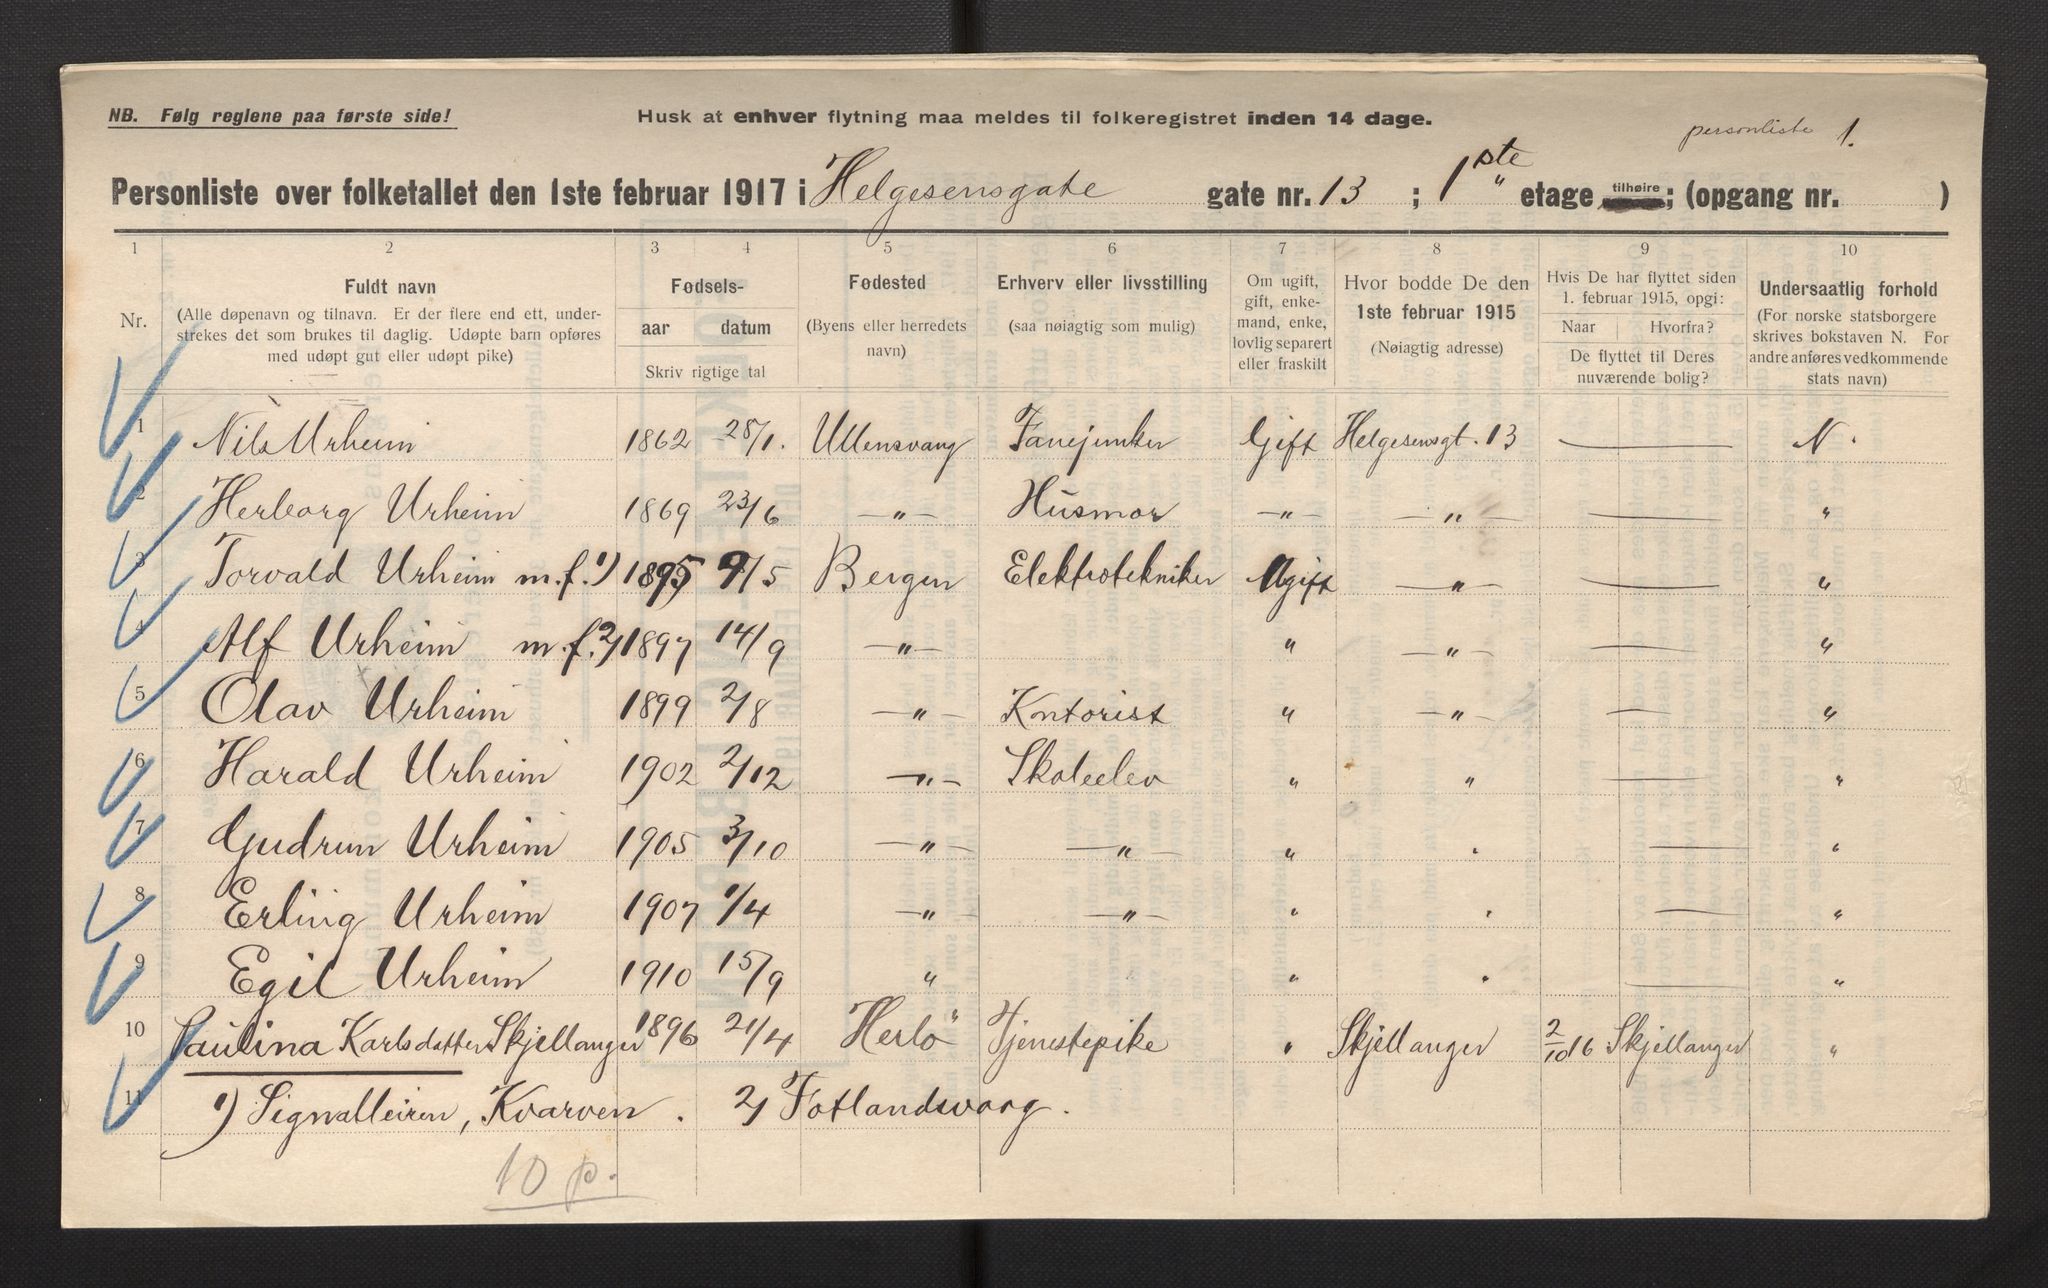 NB. Følg reglene paa første side!
Husk at enhver flytning maa meldes til folkeregistret inden 14 dage.
personliste 1.
Personliste over folketallet den 1ste februar 1917 i Helgesensgate gate nr. 13 ; 1ste " etage tilhøire; (opgang nr. )
1 2 3 4 5 6 7 8 9 10
Nr.
Fuldt navn
(Alle døpenavn og tilnavn. Er der flere end ett, under-
strekes det som brukes til daglig. Udøpte barn opføres
med udøpt gut eller udøpt pike)
Fødsels-
aar datum
Skriv rigtige tal
Fødested
(Byens eller herredets
navn)
Erhverv eller livsstilling
(saa nøiagtig som mulig)
Om ugift,
gift, enke-
mand, enke,
lovlig separert
eller fraskilt
Hvor bodde De den
1ste februar 1915
(Nøiagtig adresse)
Hvis De har flyttet siden
1. februar 1915, opgi:
Naar Hvorfra?
De flyttet til Deres
nuværende bolig?
Undersaatlig forhold
(For norske statsborgere
skrives bokstaven N. For
andre anføres vedkommende
stats navn)
1 Nils Urheim 1862 28/1. Ullensvang Fanejunker Gift Helgesensgt. 13 — — N.
2 Herborg Urheim 1869 23/6 —"— Husmor —"— —"— — "
3 Torvald Urheim m.f. 1) 1895 9/5 Bergen Elektrotekniker Ugift —"— — "
4 Alf Urheim m.f. 2) 1897 14/9 —"— " —"— — "
5 Olav Urheim 1899 2/8 —"— Kntorist " —"— — "
6 Harald Urheim 1902 2/12 —"— Skoleelev " " — "
7 Gudrun Urheim 1905 3/10 —"— —"— " " — "
8 Erling Urheim 1907 1/4 —"— —"— " " — "
9 Egil Urheim 1910 15/9 " " " — "
10 Paulina Karlsdatter Skjellanger 1896 21/4 Herlö Tjenestepike " Skjellanger 2/10 16 Skjellanger "
11 1) Signalleiren, Kvarven. 2) Fotlandsvaag.
10 p.